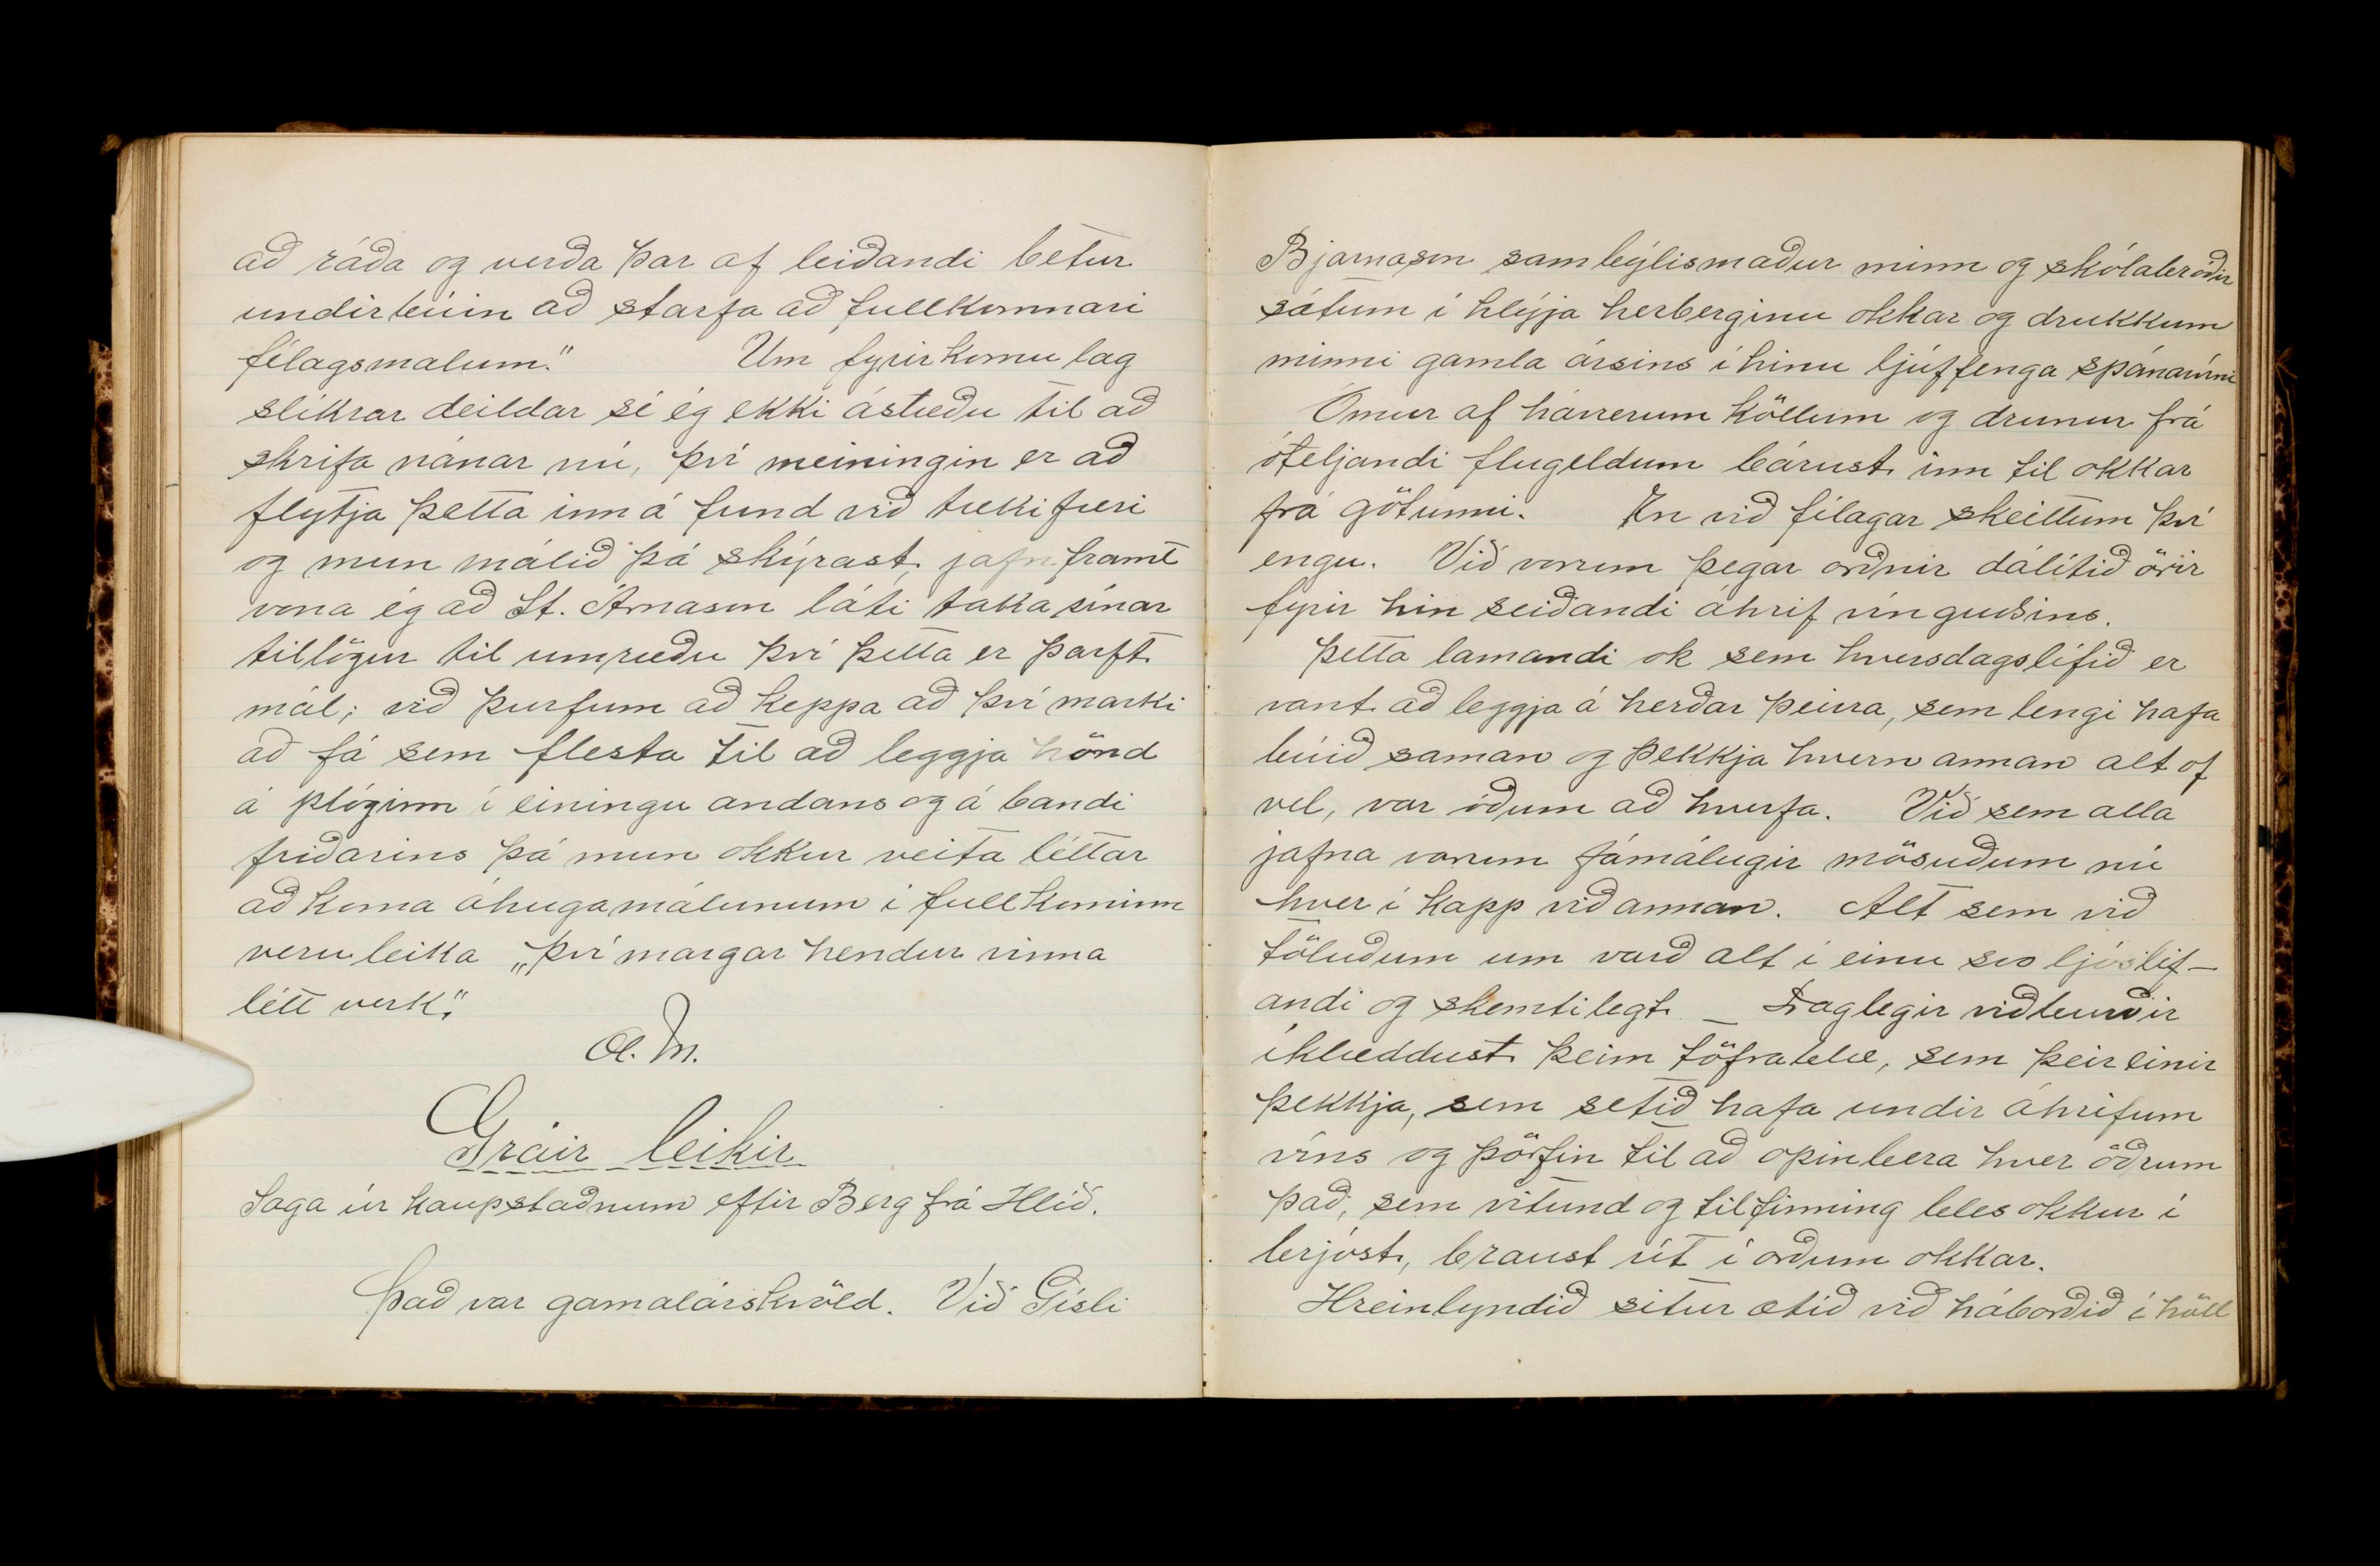 að ráða og verða þar af leiðandi betur
undirbúin að starfa að fullkomnari
félagsmalum."          Um fyrirkomulag
slíkrar deildar sé ég ekki ástæðu til að
skrifa nánar nú, því meiningin er að
flytja þetta inn á fund við tækifæri
og mun málið þá skýrast, jafnframt
vona ég að St. Árnason láti taka sínar
tillögur til umræðu því þetta er þarft
mál; við þurfum að keppa að því marki
að fá sem flesta til að leggja hönd
á plóginn í einingu andans og á bandi
friðarins þá mun okkur veita léttar
að koma áhugamálunum í fullkominn
veruleika „því margar hendur vinna
létt verk".
A. M.
Gráir leikir
Saga úr kaupstaðnum eftir Berg frá Hlíð.
Það var gamalárskvöld. Við Gísli
Bjarnason sambýlismaður minn og skólabróðir
sátum í hlýja herberginu okkar og drukkum
minni gamla ársins í hinu ljúffenga spánarvíni
Ómur af háværum köllum og drunur frá
óteljandi flugeldum bárust inn til okkar
frá götunni.      En við félagar skeittum því
engu. Við vorum þegar orðnir dálítið örir
fyrir hin seiðandi áhrif vínguðsins.
Þetta lamandi ok sem hversdagslífið er
vant að leggja á herðar þeirra, sem lengi hafa
búið saman og þekkja hvern annan alt of
vel, var óðum að hverfa. Við sem alla
jafna vorum fámálugir mösuðum nú
hver í kapp við annan. Alt sem við
töluðum um varð alt í einu svo ljóslif-
andi og skemtilegt. _ Daglegir viðburðir
íklæddust þeim töfrablæ, sem þeir einir
þekkja, sem setið hafa undir áhrifum
víns og þörfin til að opinbera hver öðrum
það, sem vitund og tilfinning bles okkur í
brjóst, braust út í orðum okkar.
Hreinlyndið situr ætíð við háborðið í höll